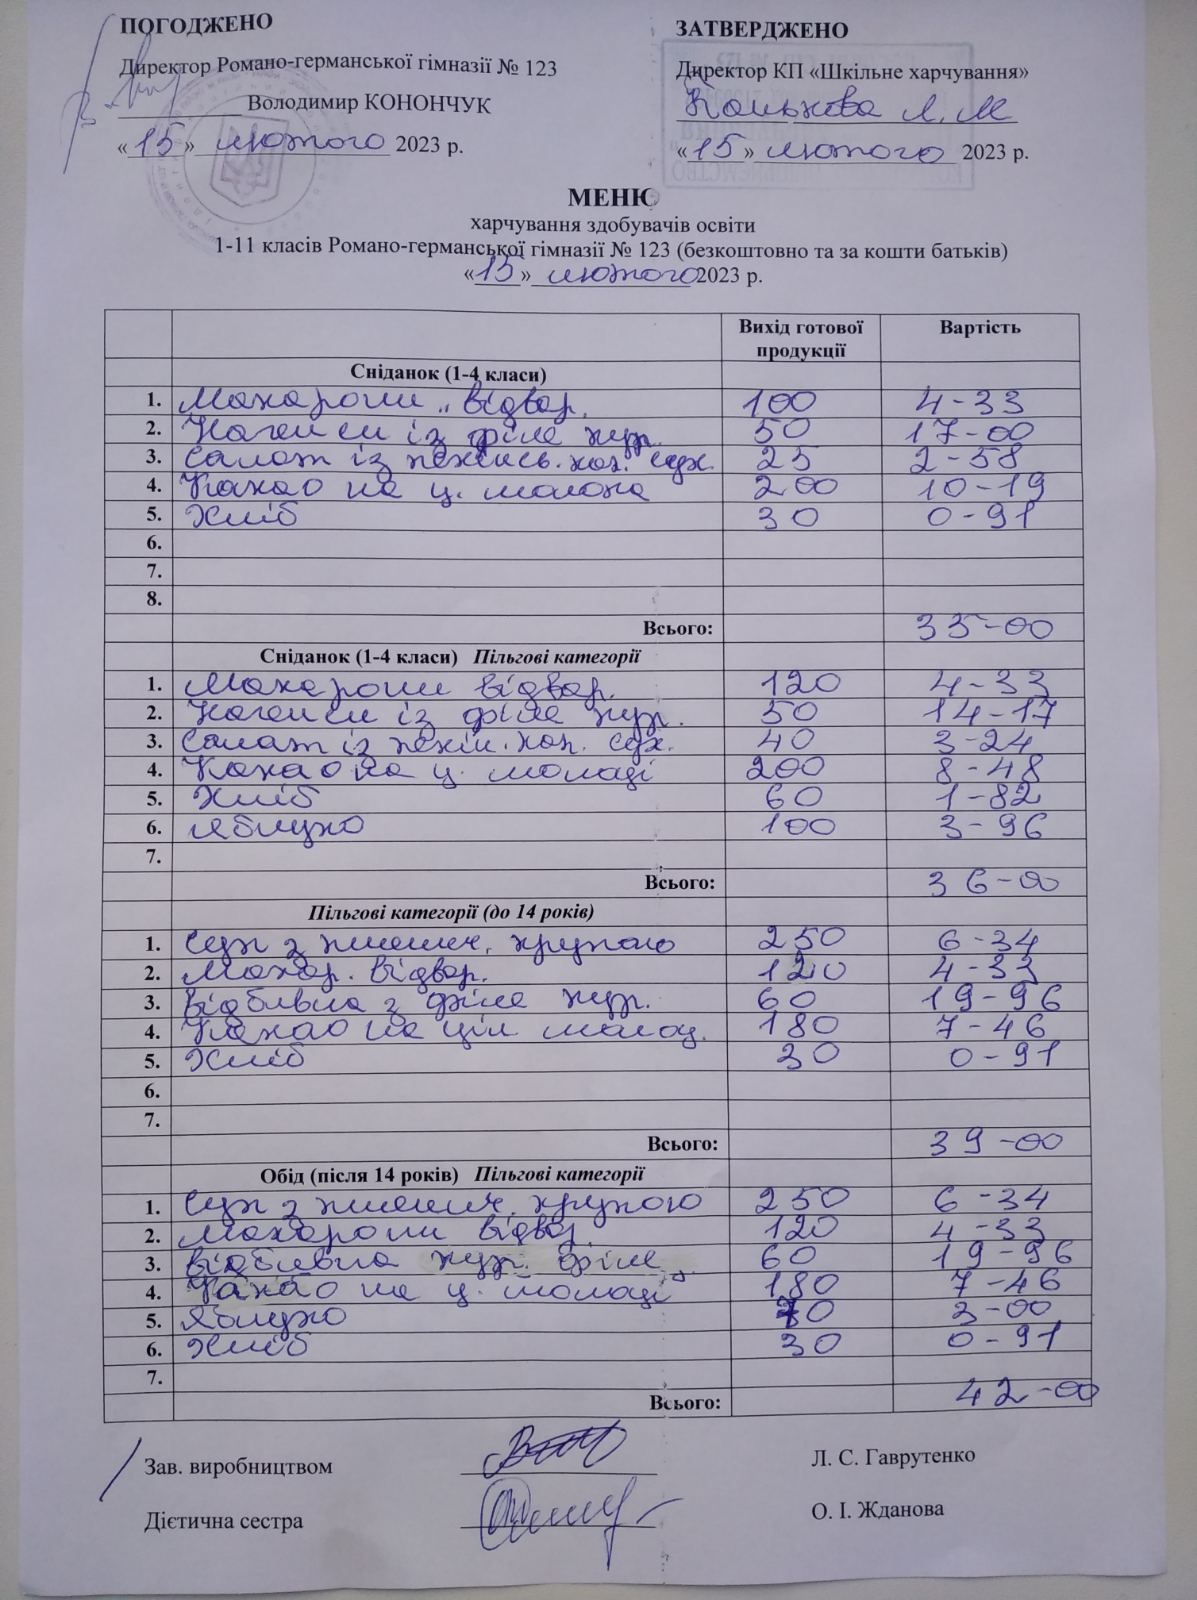 ПОГОДЖЕНО
Директор Романо-германської гімназії № 123
Володимир КОНОНЧУК
«15» лютого 2023 р.
ЗАТВЕРДЖЕНО
Директор КП «Шкільне харчування»
Л. М
«15» лютого 2023 р.
МЕНЮ
харчування здобувачів освіти
1-11 класів Романо-германської гімназії № 123 (безкоштовно та за кошти батьків)
«15» лютого 2023 р.
Вихід готової продукції Вартість
Сніданок (1-4 класи)
1. Макарони відвар. 100 4-33
2. Нагенси із філе кур. 50 17-00
3. Салат із пекінсь. кап. сух. 25 2-58
4. Какао на ц. молока 200 10-19
5. Хліб 30 0-91
6.
7.
8.
Всього: 35-00
Сніданок (1-4 класи) Пільгові категорії
1. Макарони відвар. 120 4-33
2. Нагенси із філе кур. 50 14-17
3. Салат із пекін. кап. сух. 40 3-24
4. Какао на ц. молоці 200 8-48
5. Хліб 60 1-82
6. Яблуко 100 3-96
7.
Всього: 36-00
Пільгові категорії (до 14 років)
1. Суп з пшенич. крупою 250 6-34
2. Макар. відвар. 120 4-33
3. Відбивна з філе кур. 60 19-96
4. Какао на ціл молоц. 180 7-46
5. Хліб 30 0-91
6.
7.
Всього: 39-00
Обід (після 14 років) Пільгові категорії
1. Суп з пшенич. крупою 250 6-34
2. Макарони відвар. 120 4-33
3. Відбивна кур. філе 60 19-96
4. Какао на ц. молоці 180 7-46
5. Яблуко 70 3-00
6. Хліб 30 0-91
7.
Всього: 42-00
Зав. виробництвом Л. С. Гаврутенко
Дієтична сестра О. І. Жданова